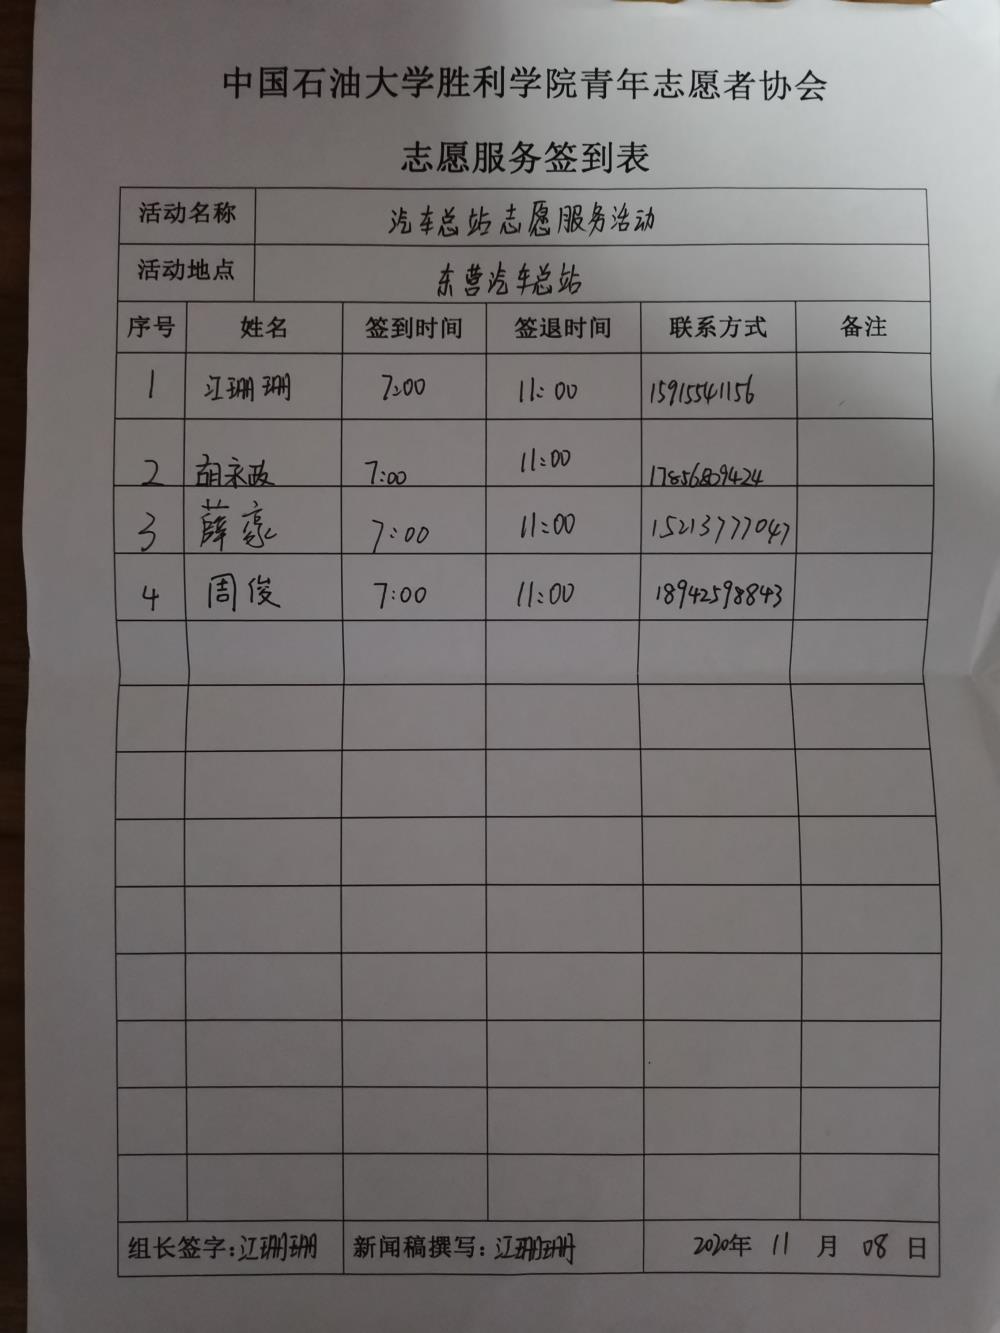 中国石油大学胜利学院青年志愿者协会
志愿服务签到表
活动名称 汽车总站志愿服务活动
活动地点 东营汽车总站
序号 姓名 签到时间 签退时间 联系方式 备注
1 江珊珊 7:00 11:00 15915541156
2 胡永政 7:00 11:00 17856809424
3 薛豪 7:00 11:00 15213777047
4 周俊 7:00 11:00 18942598843
组长签字:江珊珊 新闻稿撰写:江珊珊 2020年 11 月 08 日